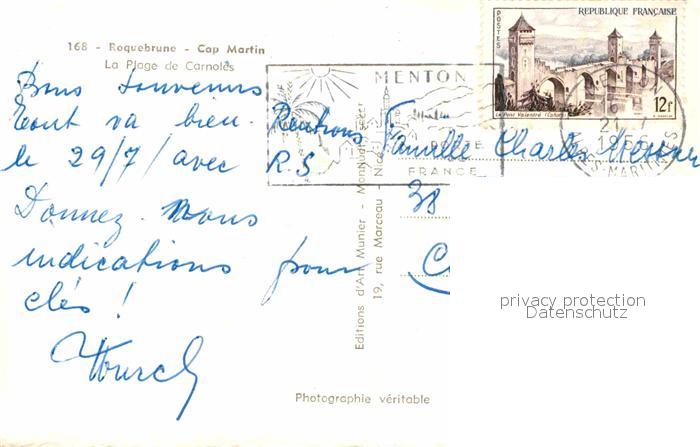 168 - Roquebrune - Cap Martin
La Plage de Carnolès
Bons souvenirs
tout va bien. Rentrons
le 29/7/avec R.S
Donnez-nous
indications pour
clés !
MENTON
FRANCE
REPUBLIQUE FRANÇAISE
POSTES
Le Pont Valentré (Cahors)
12F
21-7
1956
Famille Charles
38
Editions d'Art Munier -
19, rue Marceau - Nice
privacy protection
Datenschutz
Photographie véritable